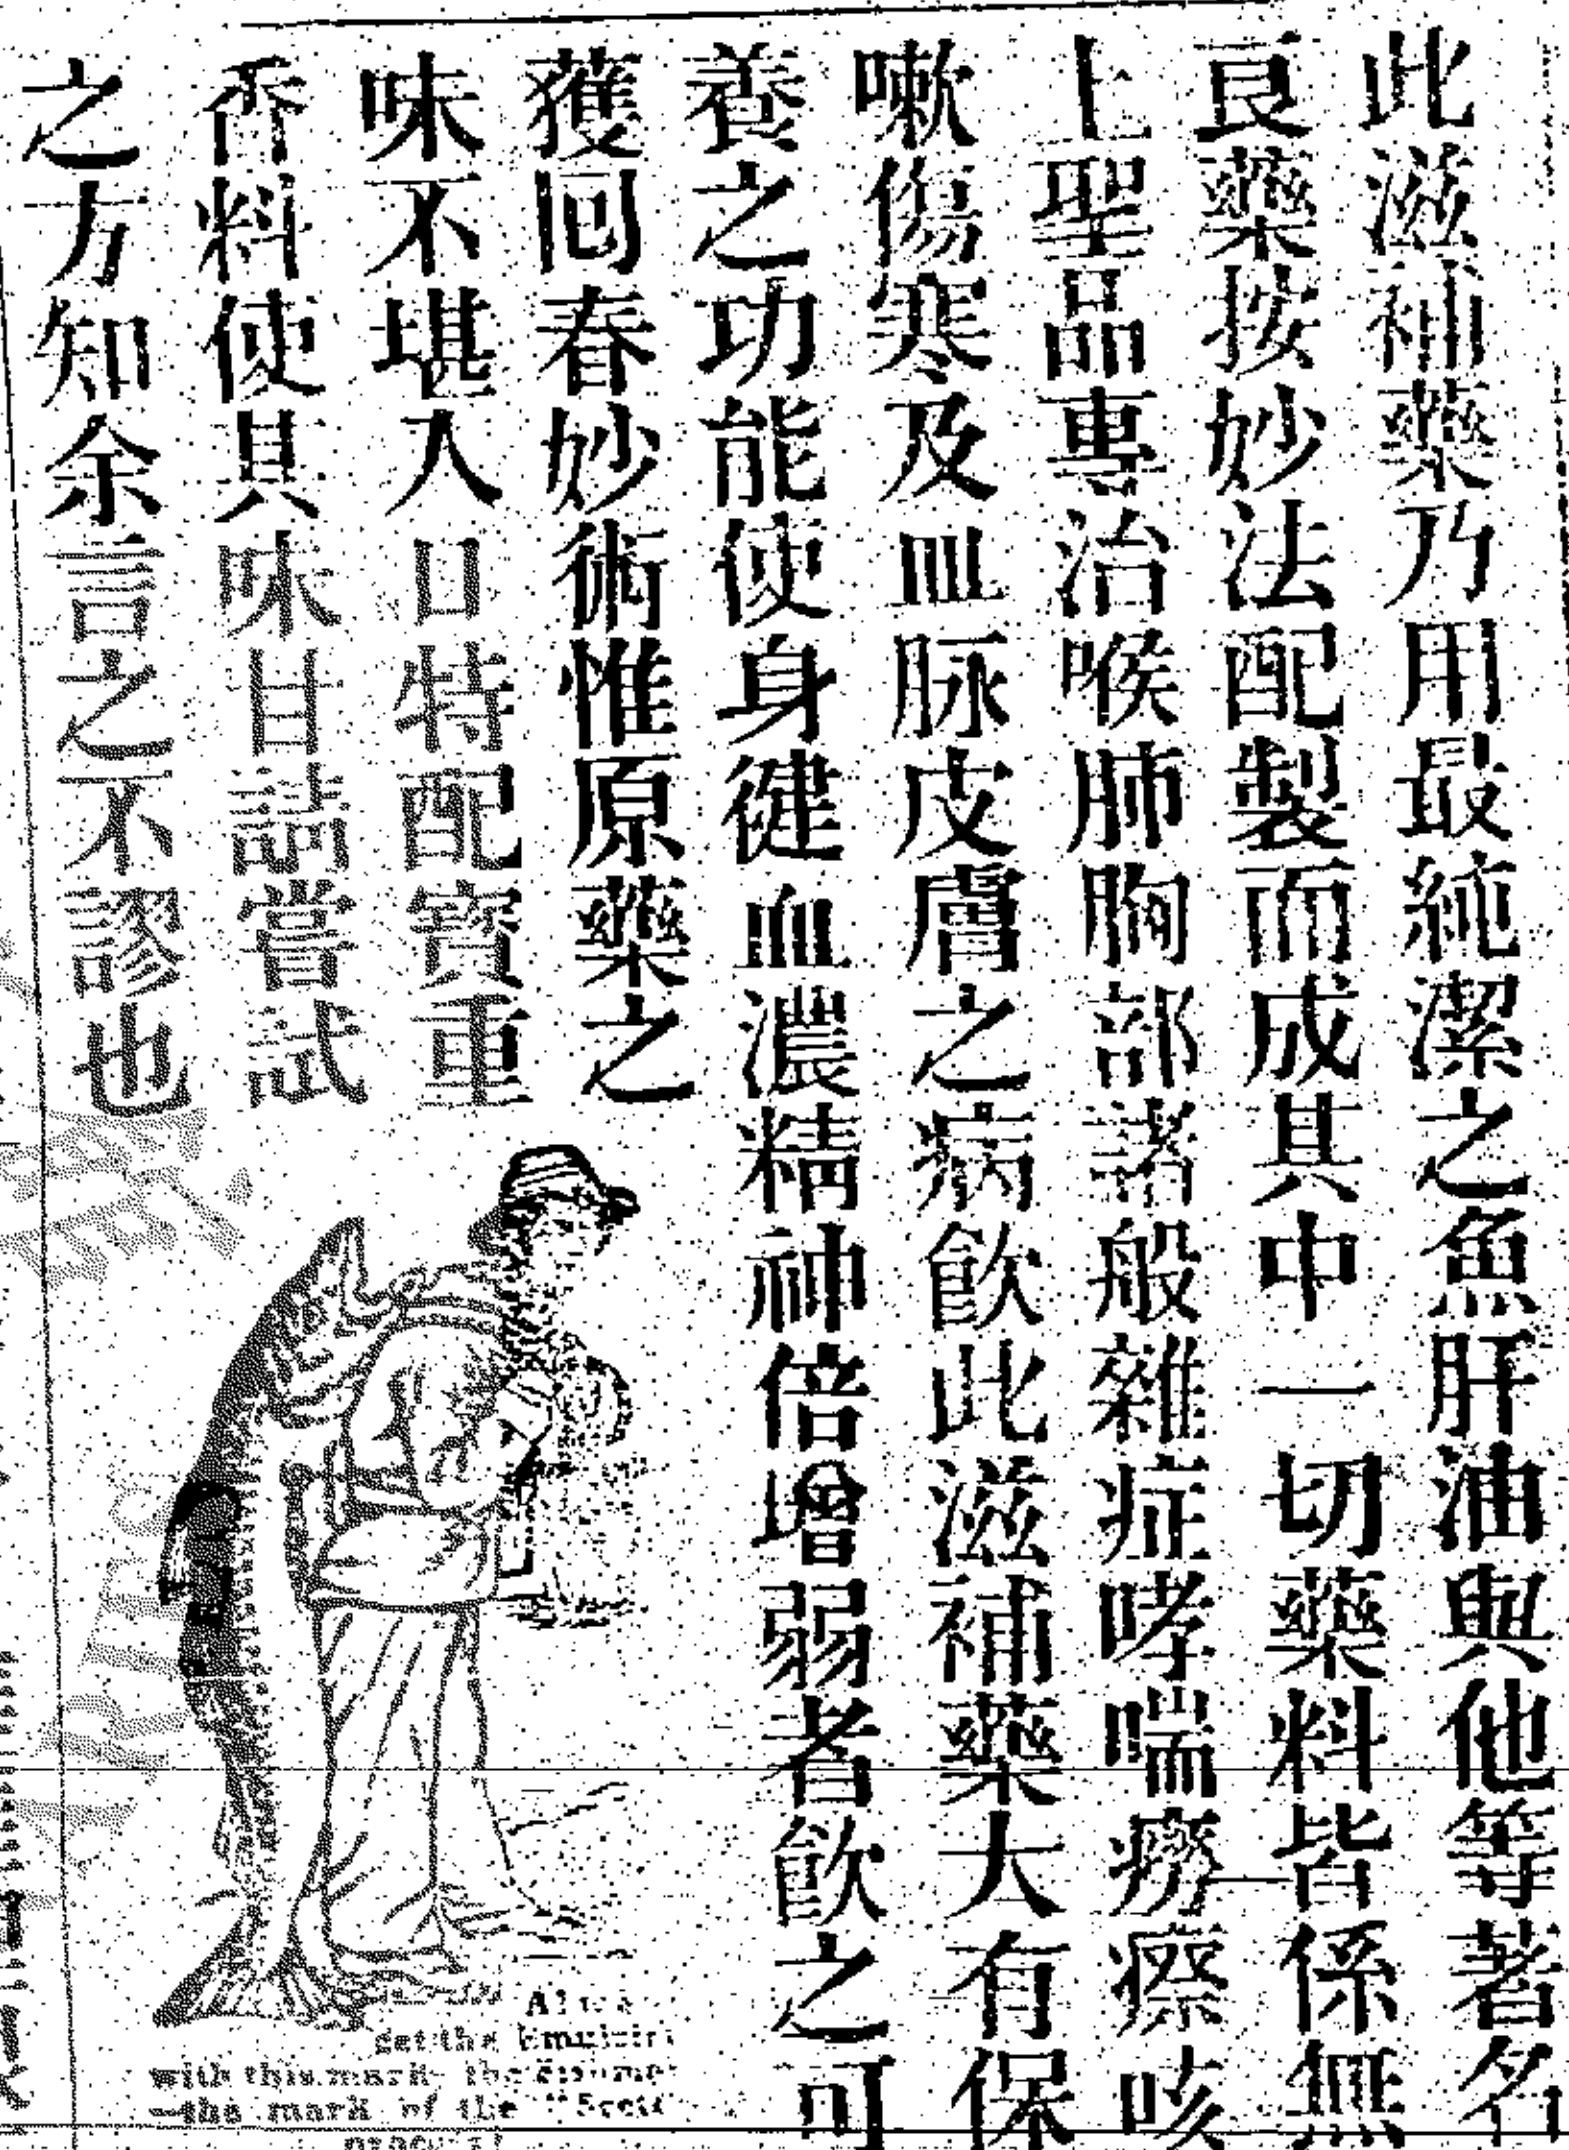 此滋補藥乃用最純潔之魚肝油與他等著名
良藥按妙法配製而成其中一切藥料皆係無
上聖品專治喉肺胸部諸般雜症哮喘癆瘵咳
嗽傷寒及血脉皮膚之病飲此滋補藥大有保
養之功能使身健血濃精神倍增弱者飲之可
獲回春妙術惟原藥之
味不堪入口特配寶重
香料使其味甘請嘗試
之方知余言之不謬也
Always
get the Emulsion
with this mark the
the mark of the "Scott